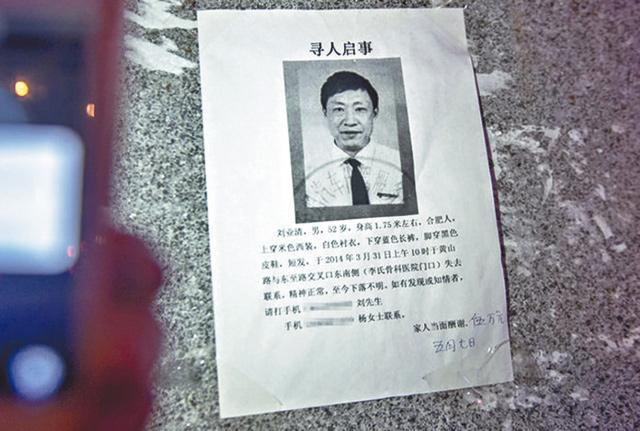 寻人启事
刘业清，男，52岁，身高1.75米左右，合肥人，
上穿米色西装，白色衬衣，下穿蓝色长裤，脚穿黑色
皮鞋，短发，于2014年3月31日上午10时于黄山
路与东至路交叉口东南侧（李氏骨科医院门口）失去
联系，精神正常，至今下落不明。如有发现或知情者，
请打手机 刘先生
手机 杨女士联系。
家人当面酬谢。伍万元
五月七日